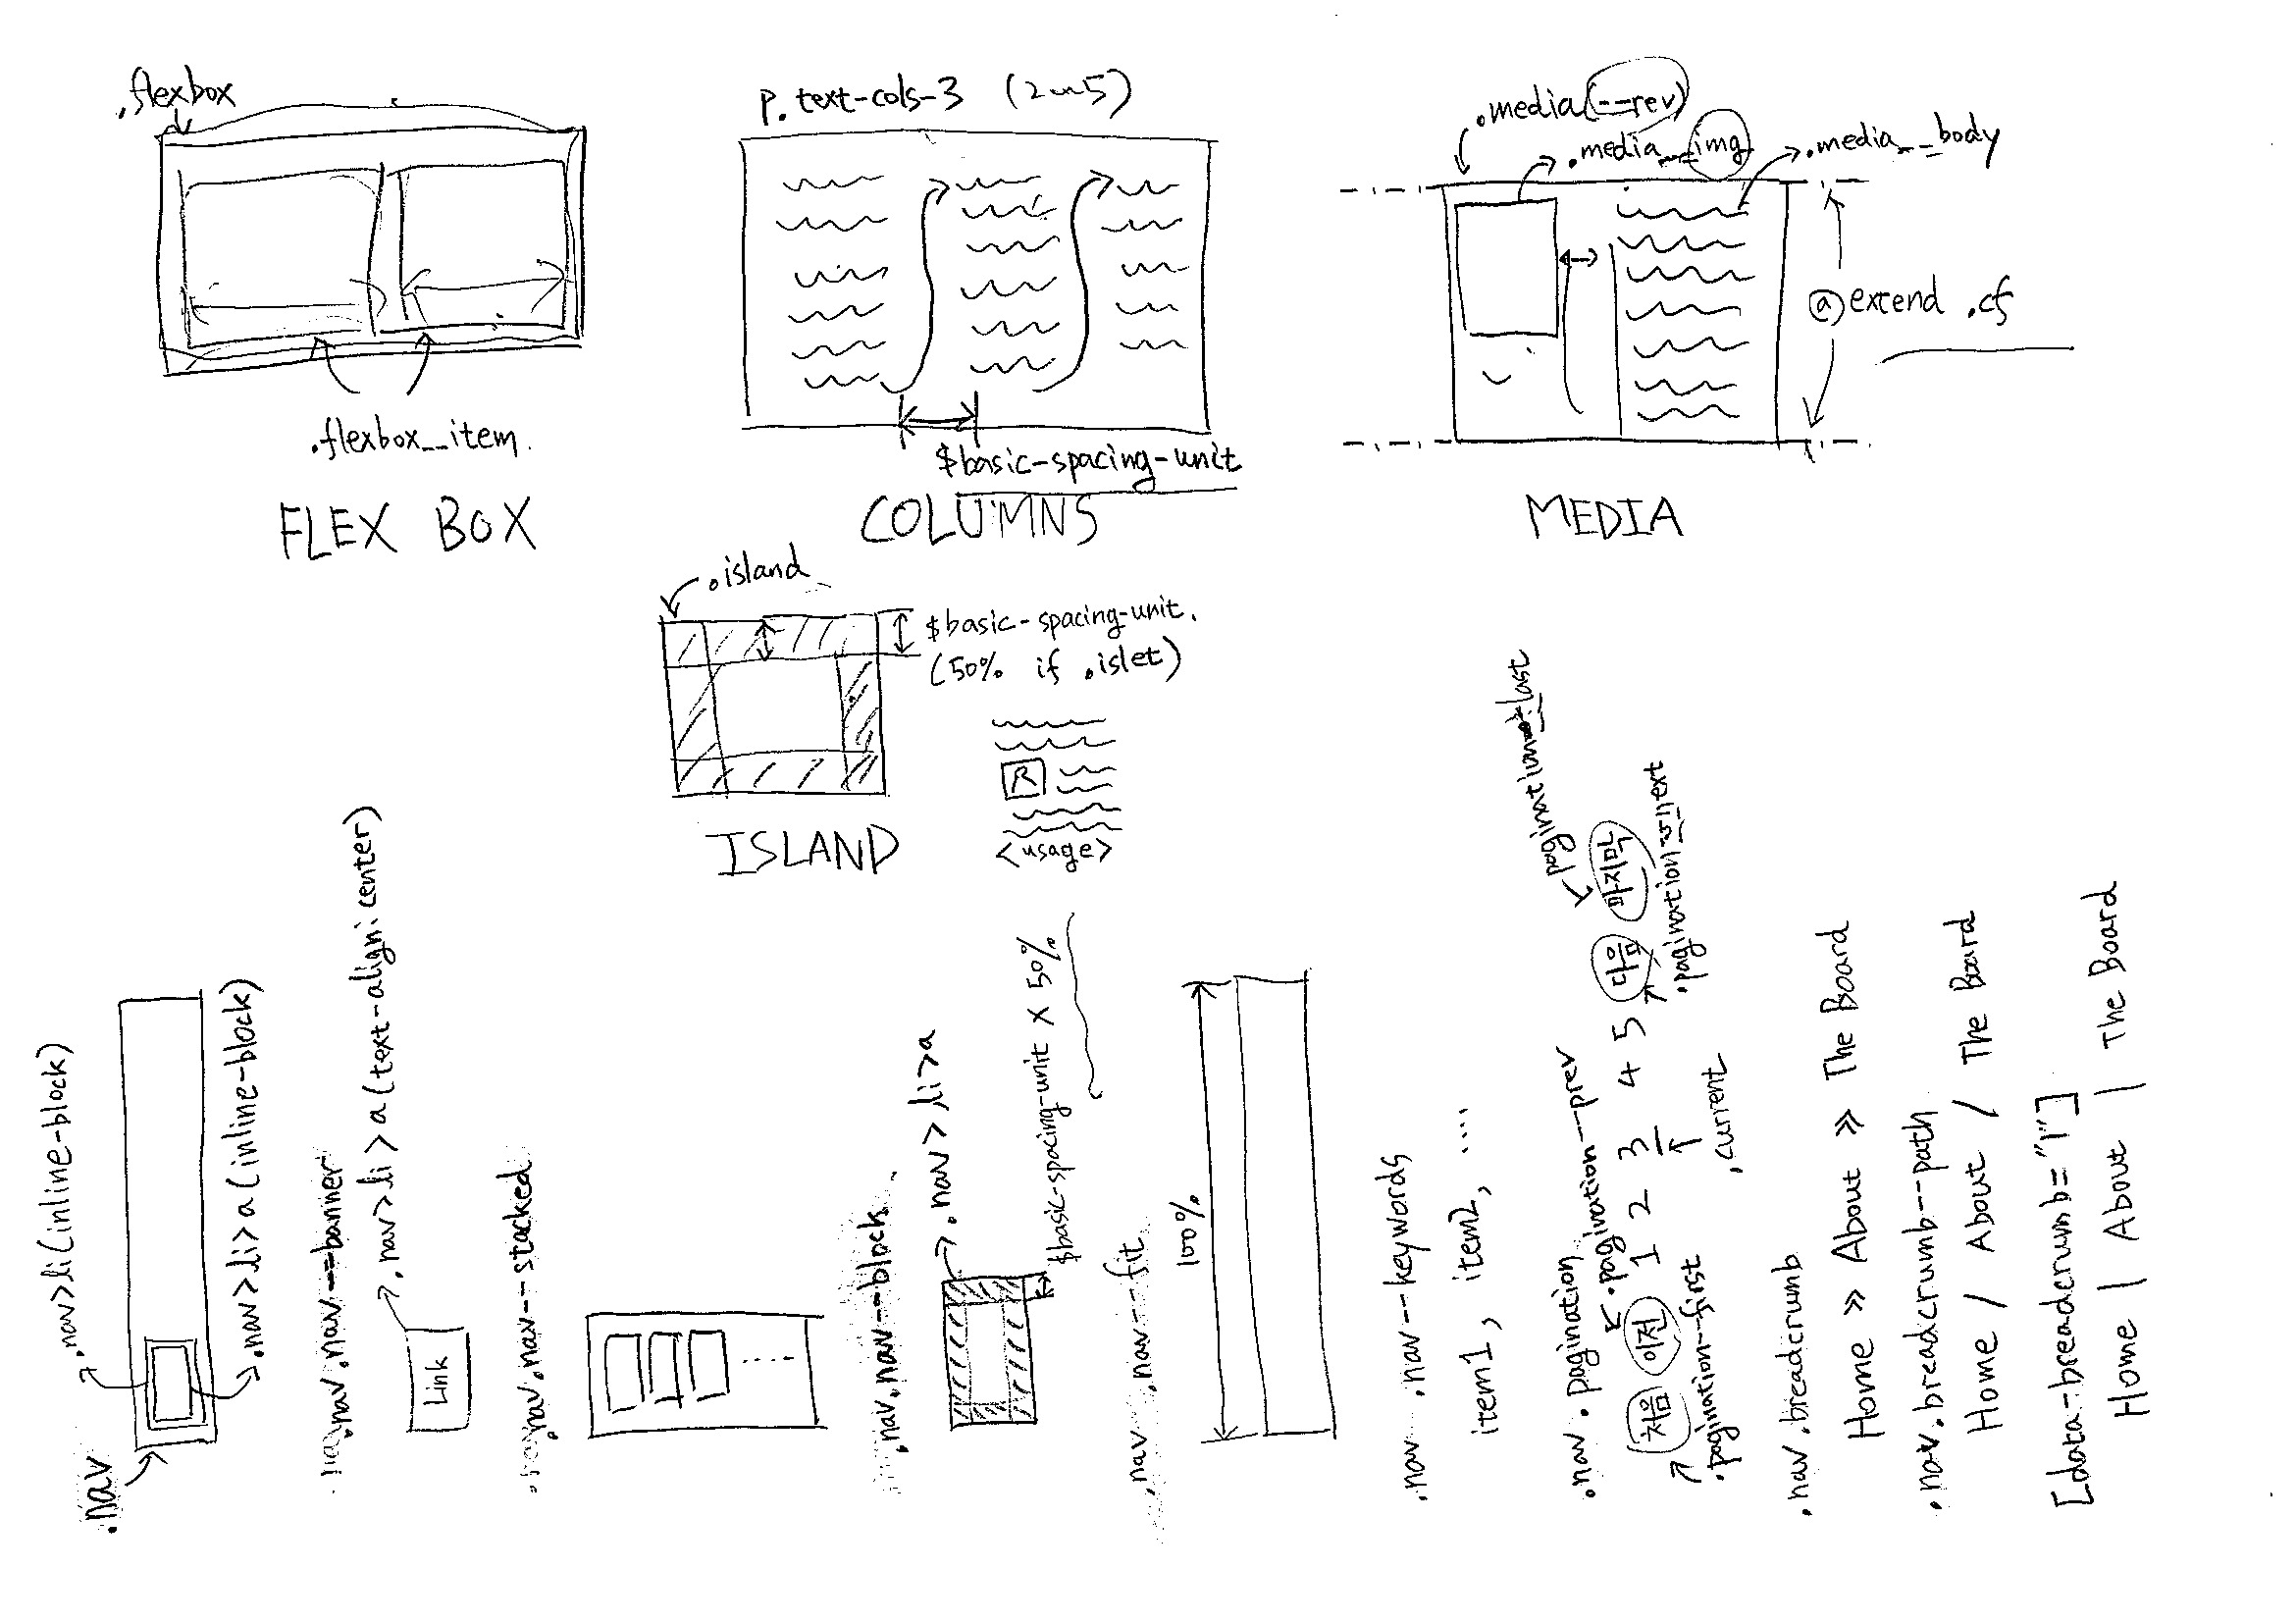 .flexbox
.flexbox__item.
FLEX BOX
p.text-cols-3 (2~5)
$basic-spacing-unit
COLUMNS
.media(--rev)
.media__img
.media__body
@extend .cf
MEDIA
.island
$basic-spacing-unit.
(50% if .islet)
R
<usage>
ISLAND
.nav
.nav>li(inline-block)
.nav>li>a(inline-block)
.nav.nav--banner
.nav>li>a(text-align:center)
Link
.nav.nav--stacked
.....
.nav.nav--block
.nav>li>a
$basic-spacing-unit X 50%
.nav.nav--fit
100%
.nav .nav--keywords
item1, item2, ....
.nav.pagination
.pagination--prev
처음 이전 1 2 3 4 5 다음 마지막
.pagination--first
.current
.pagination--next
.pagination--last
.nav.breadcrumb
Home » About » The Board
.nav.breadcrumb--path
Home / About / The Board
[data-breadcrumb="|"]
Home | About | The Board